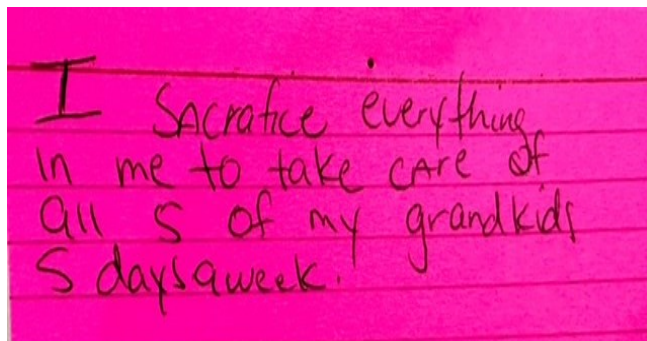 I SAcrafice everything
in me to take cAre of
all 5 of my grandkids
5 days a week.